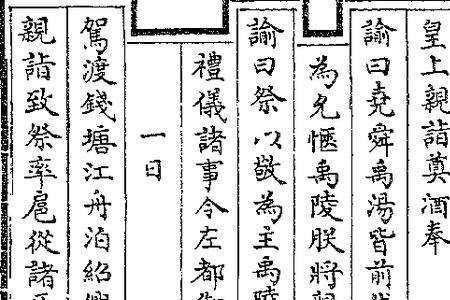 皇上親詣奠酒奉
諭曰堯舜禹湯皆前
為允愜禹陵朕將親
諭曰祭以敬為主禹陵
禮儀諸事令左都御
一日
駕渡錢塘江舟泊紹興
親詣致祭率扈從諸